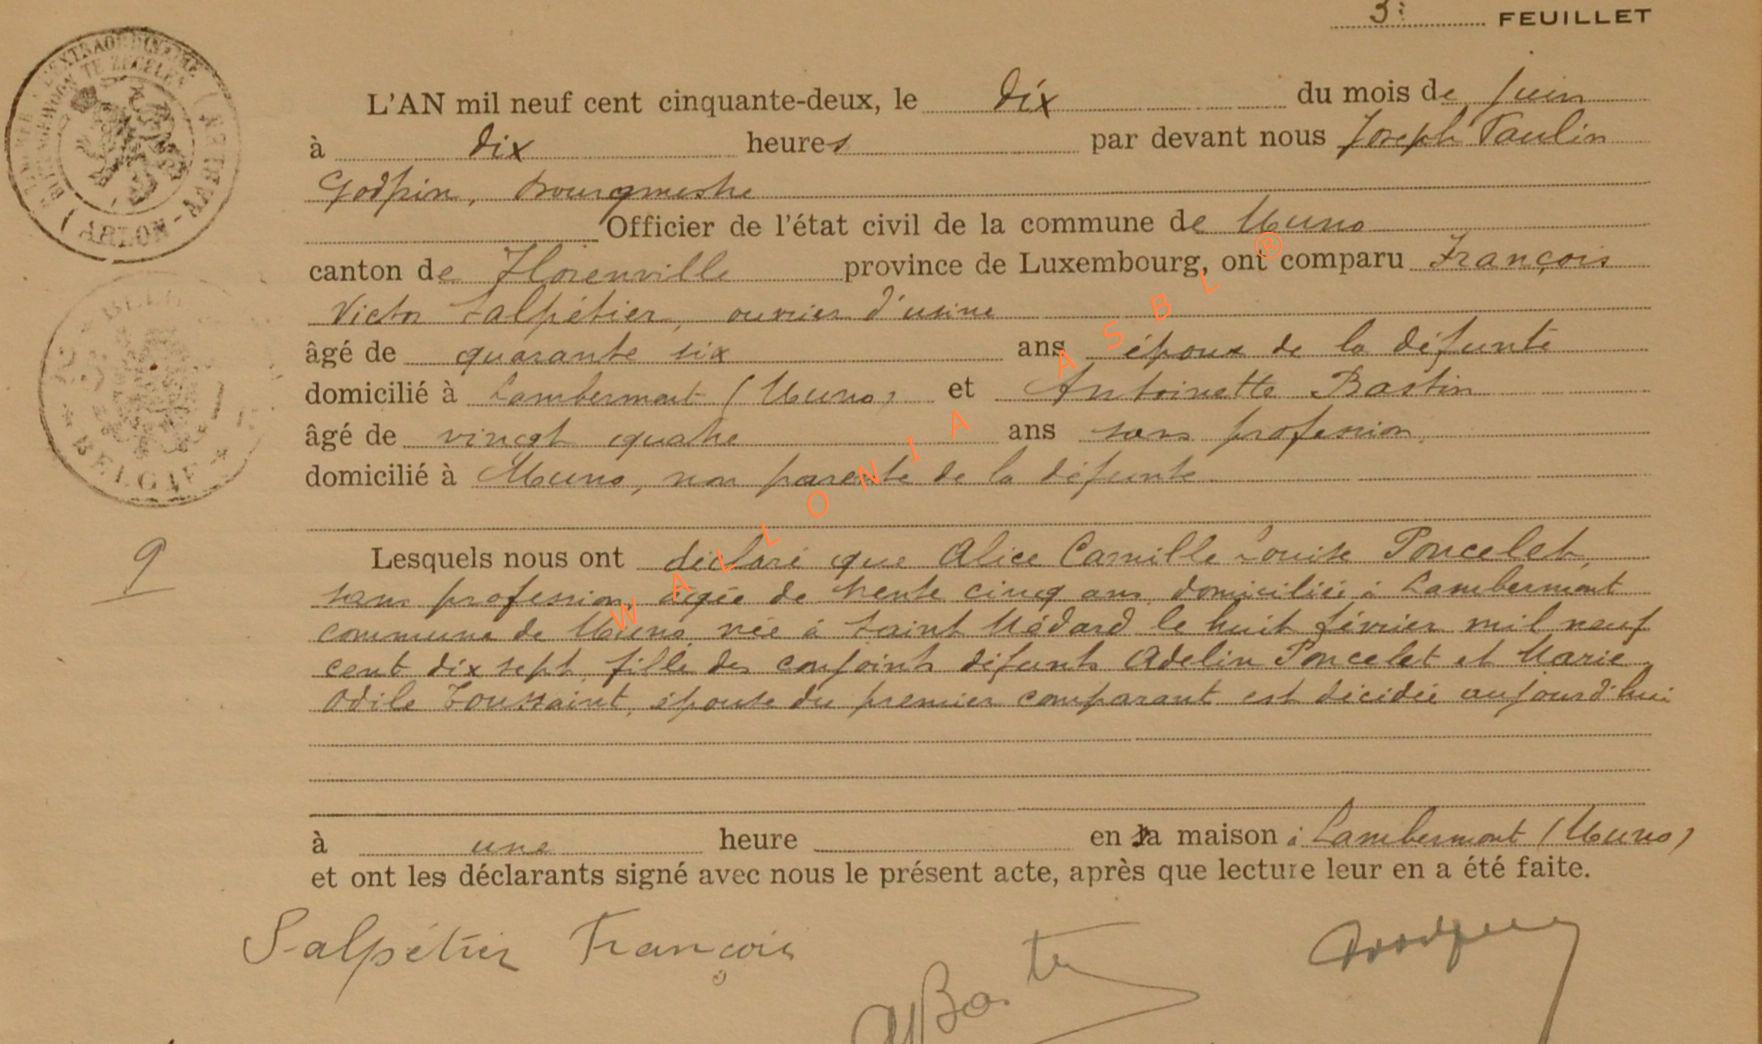 3e FEUILLET
L'AN mil neuf cent cinquante-deux, le dix du mois de juin
à dix heures par devant nous Joseph Paulin
Godfrin, bourgmestre
Officier de l'état civil de la commune de Muno
canton de Florenville province de Luxembourg, ont comparu François
Victor Salpétier, ouvrier d'usine
âgé de quarante six ans époux de la défunte
domicilié à Lambermont (Muno) et Antoinette Bastin
âgé de vingt quatre ans sans profession,
domicilié à Muno, non parente de la défunte
9
Lesquels nous ont déclaré que Alice Camille Louise Poncelet,
sans profession, agée de trente cinq ans, domiciliée à Lambermont
commune de Muno née à Saint Médard le huit février mil neuf
cent dix sept, fille des conjoints défunts Adelin Poncelet et Marie
Odile Toussaint, épouse du premier comparant est décédée aujourd'hui
à une heure en sa maison à Lambermont (Muno)
et ont les déclarants signé avec nous le présent acte, après que lecture leur en a été faite.
Salpétier François
ARLON - AARLEN
BELGIE
WALLONIA ASBL ®